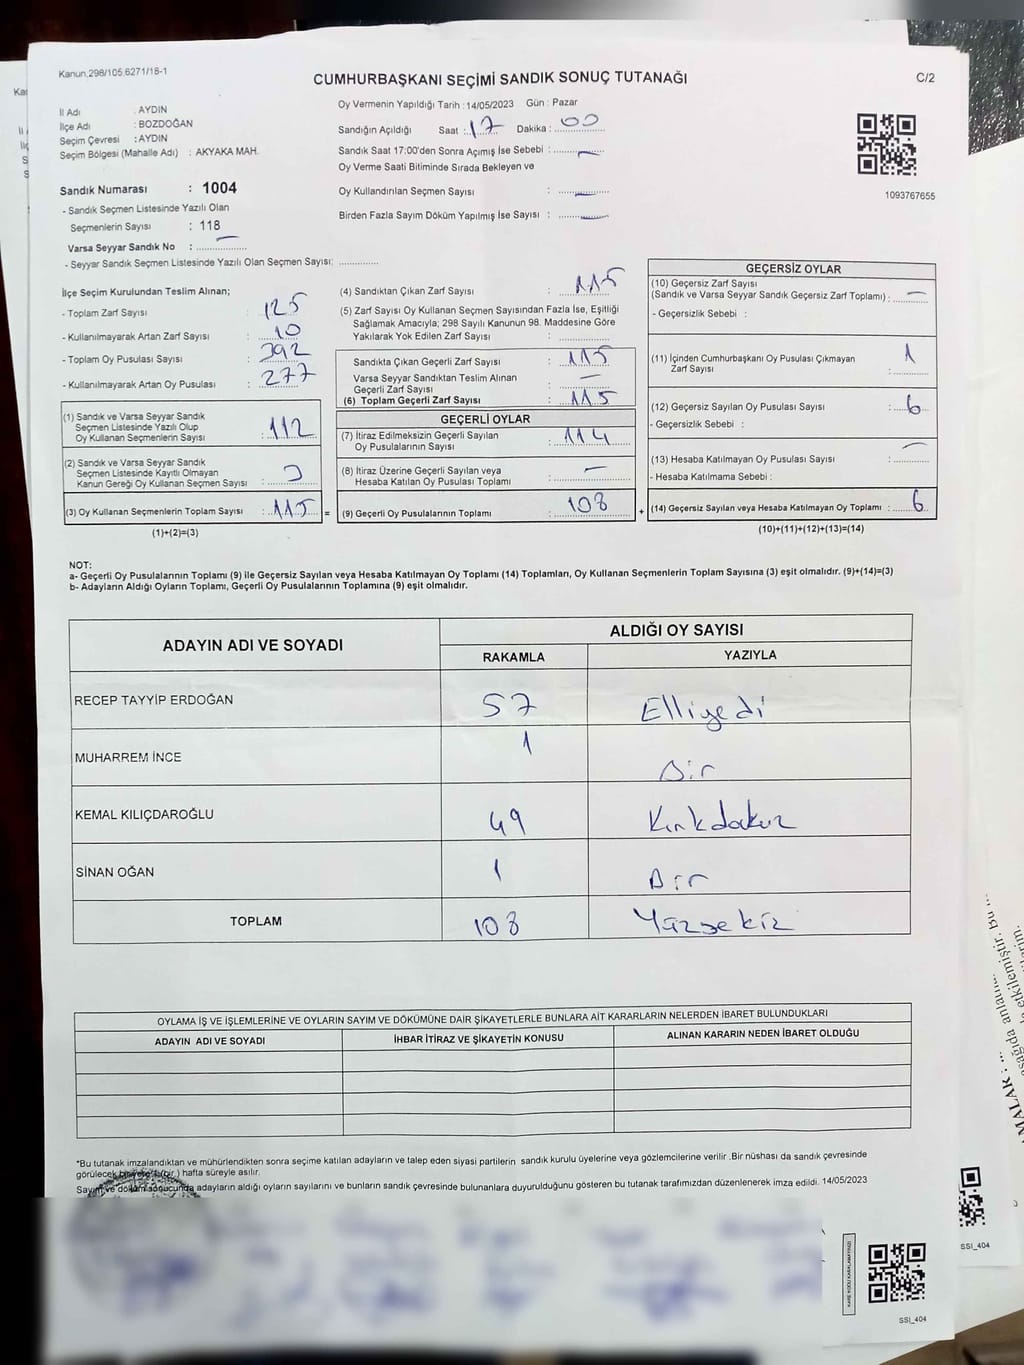 Kanun,298/105,6271/18-1
CUMHURBAŞKANI SEÇİMİ SANDIK SONUÇ TUTANAĞI
C/2
İl Adı : AYDIN
İlçe Adı : BOZDOĞAN
Seçim Çevresi : AYDIN
Seçim Bölgesi (Mahalle Adı) : AKYAKA MAH.
Sandık Numarası : 1004
- Sandık Seçmen Listesinde Yazılı Olan
Seçmenlerin Sayısı : 118
Varsa Seyyar Sandık No : —
- Seyyar Sandık Seçmen Listesinde Yazılı Olan Seçmen Sayısı: ..............
Oy Vermenin Yapıldığı Tarih : 14/05/2023 Gün : Pazar
Sandığın Açıldığı Saat : 17 Dakika : 00
Sandık Saat 17:00'den Sonra Açımış İse Sebebi : —
Oy Verme Saati Bitiminde Sırada Bekleyen ve
Oy Kullandırılan Seçmen Sayısı : —
Birden Fazla Sayım Döküm Yapılmış İse Sayısı : —
1093767655
İlçe Seçim Kurulundan Teslim Alınan;
- Toplam Zarf Sayısı : 125
- Kullanılmayarak Artan Zarf Sayısı : 10
- Toplam Oy Pusulası Sayısı : 392
- Kullanılmayarak Artan Oy Pusulası : 277
(1) Sandık ve Varsa Seyyar Sandık
Seçmen Listesinde Yazılı Olup
Oy Kullanan Seçmenlerin Sayısı : 112
(2) Sandık ve Varsa Seyyar Sandık
Seçmen Listesinde Kayıtlı Olmayan
Kanun Gereği Oy Kullanan Seçmen Sayısı : 3
(3) Oy Kullanan Seçmenlerin Toplam Sayısı : 115 =
(1)+(2)=(3)
(4) Sandıktan Çıkan Zarf Sayısı : 115
(5) Zarf Sayısı Oy Kullanan Seçmen Sayısından Fazla İse, Eşitliği
Sağlamak Amacıyla; 298 Sayılı Kanunun 98. Maddesine Göre
Yakılarak Yok Edilen Zarf Sayısı : ..............
Sandıkta Çıkan Geçerli Zarf Sayısı : 115
Varsa Seyyar Sandıktan Teslim Alınan
Geçerli Zarf Sayısı : —
(6) Toplam Geçerli Zarf Sayısı : 115
GEÇERLİ OYLAR
(7) İtiraz Edilmeksizin Geçerli Sayılan
Oy Pusulalarının Sayısı : 114
(8) İtiraz Üzerine Geçerli Sayılan veya
Hesaba Katılan Oy Pusulası Toplamı : —
(9) Geçerli Oy Pusulalarının Toplamı : 108 +
GEÇERSİZ OYLAR
(10) Geçersiz Zarf Sayısı
(Sandık ve Varsa Seyyar Sandık Geçersiz Zarf Toplamı) : —
- Geçersizlik Sebebi :
(11) İçinden Cumhurbaşkanı Oy Pusulası Çıkmayan
Zarf Sayısı : 1
(12) Geçersiz Sayılan Oy Pusulası Sayısı : 6
- Geçersizlik Sebebi :
(13) Hesaba Katılmayan Oy Pusulası Sayısı : —
- Hesaba Katılmama Sebebi :
(14) Geçersiz Sayılan veya Hesaba Katılmayan Oy Toplamı : 6
(10)+(11)+(12)+(13)=(14)
NOT:
a- Geçerli Oy Pusulalarının Toplamı (9) ile Geçersiz Sayılan veya Hesaba Katılmayan Oy Toplamı (14) Toplamları, Oy Kullanan Seçmenlerin Toplam Sayısına (3) eşit olmalıdır. (9)+(14)=(3)
b- Adayların Aldığı Oyların Toplamı, Geçerli Oy Pusulalarının Toplamına (9) eşit olmalıdır.
ADAYIN ADI VE SOYADI
ALDIĞI OY SAYISI
RAKAMLA YAZIYLA
RECEP TAYYİP ERDOĞAN 57 Elliyedi
MUHARREM İNCE 1 Bir
KEMAL KILIÇDAROĞLU 49 Kırkdokuz
SİNAN OĞAN 1 Bir
TOPLAM 108 Yüzsekiz
OYLAMA İŞ VE İŞLEMLERİNE VE OYLARIN SAYIM VE DÖKÜMÜNE DAİR ŞİKAYETLERLE BUNLARA AİT KARARLARIN NELERDEN İBARET BULUNDUKLARI
ADAYIN ADI VE SOYADI İHBAR İTİRAZ VE ŞİKAYETİN KONUSU ALINAN KARARIN NEDEN İBARET OLDUĞU
*Bu tutanak imzalandıktan ve mühürlendikten sonra seçime katılan adayların ve talep eden siyasi partilerin sandık kurulu üyelerine veya gözlemcilerine verilir .Bir nüshası da sandık çevresinde
görülecek bir yere 1 (bir ) hafta süreyle asılır.
Sayım ve döküm sonucunda adayların aldığı oyların sayılarını ve bunların sandık çevresinde bulunanlara duyurulduğunu gösteren bu tutanak tarafımızdan düzenlenerek imza edildi. 14/05/2023
SSI_404
SSI_404